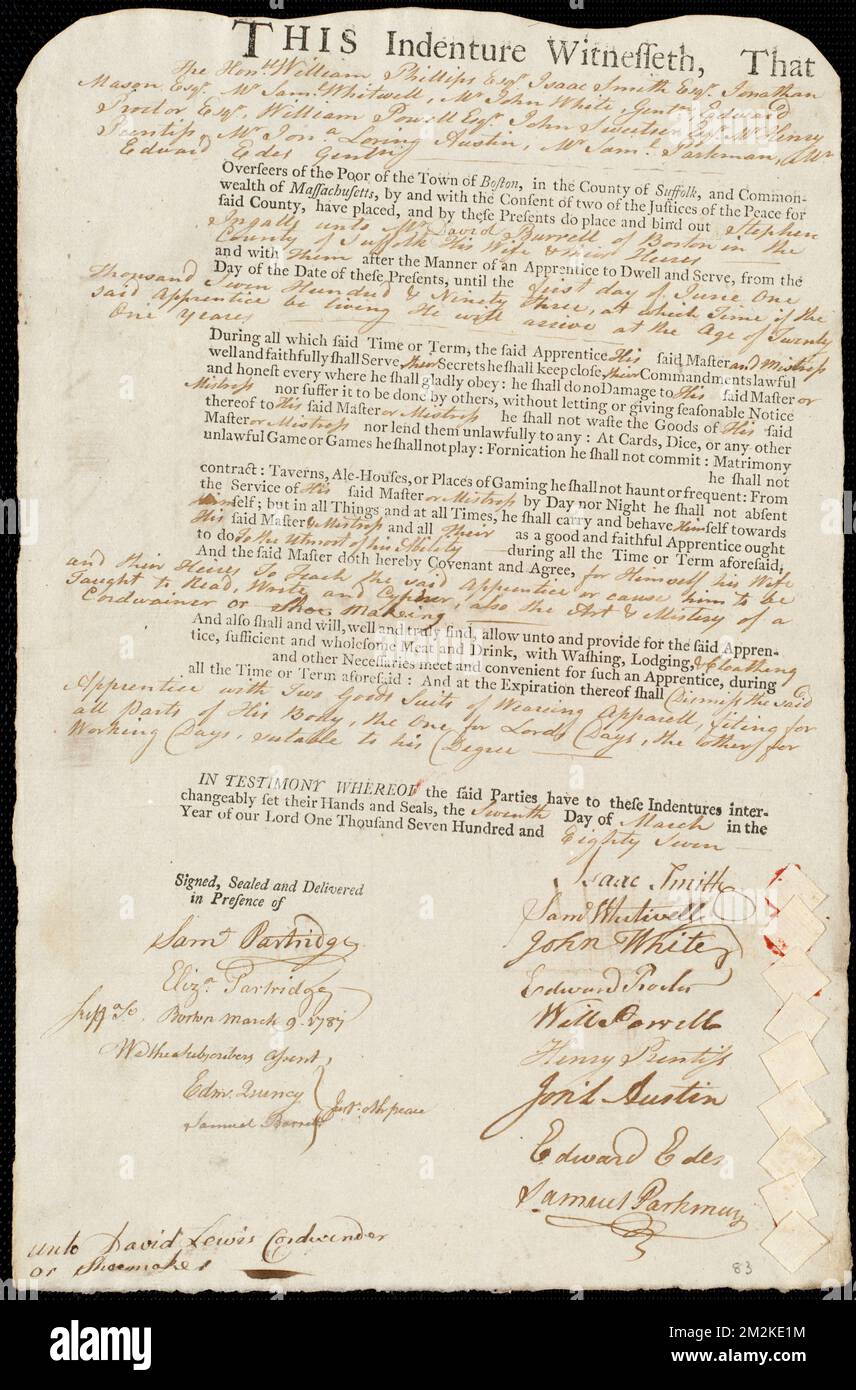 THIS Indenture Witnesseth, That
The Honl. William Phillips Esqr. Isaac Smith Esqr. Jonathan
Mason Esqr. Mr Saml. Whitwell, Mr John White, Gentn. Edward
Proctor Esqr. William Powell Esqr. John Sweetser Esqr. Mr Henry
Prentiss, Mr Jona. Loring Austin, Mr Saml. Parkman, & Mr
Edward Edes Gentn
Overseers of the Poor of the Town of Boston, in the County of Suffolk, and Common-
wealth of Massachusetts, by and with the Consent of two of the Justices of the Peace for
said County, have placed, and by these Presents do place and bind out Stephen
Ingalls unto Mr David Burrell of Boston in the
County of Suffolk His Wife & their Heires
and with Them after the Manner of an Apprentice to Dwell and Serve, from the
Day of the Date of these Presents, until the first day of June One
Thousand Seven Hundred & Ninety three, at which Time if the
said Apprentice be living He will arrive at the Age of Twenty
One Years
During all which said Time or Term, the said Apprentice His said Master and Mistress
well and faithfully shall Serve, their Secrets he shall keep close, their Commandments lawful
and honest every where he shall gladly obey: he shall do no Damage to His said Master or
Mistress nor suffer it to be done by others, without letting or giving seasonable Notice
thereof to His said Master or Mistress he shall not waste the Goods of His said
Master or Mistress nor lend them unlawfully to any: At Cards, Dice, or any other
unlawful Game or Games he shall not play: Fornication he shall not commit: Matrimony
he shall not
contract: Taverns, Ale-Houses, or Places of Gaming he shall not haunt or frequent: From
the Service of His said Master or Mistress by Day nor Night he shall not absent
himself; but in all Things and at all Times, he shall carry and behave Himself towards
His said Master & Mistress and all Their as a good and faithful Apprentice ought
to do To the Utmost of his Ability during all the Time or Term aforesaid,
And the said Master doth hereby Covenant and Agree, for Himself his Wife
and thier Heires To Teach the said Apprentice or cause him to be
Taught to Read, Write and Cypher, also the Art & Mistery of a
Cordwainer or Shoe making
And also shall and will, well and truly find, allow unto and provide for the said Appren-
tice, sufficient and wholesome Meat and Drink, with Washing, Lodging, & Cloathing
and other Necessaries meet and convenient for such an Apprentice, during
all the Time or Term aforesaid: And at the Expiration thereof shall Dismiss the said
Apprentice with Two Goods Suits of Wearing Apparell, fiting for
all Parts of His Body, the One for Lords Days, the other for
Working Days, suitable to his Degree
IN TESTIMONY WHEREOF the said Parties have to these Indentures inter-
changeably set their Hands and Seals, the Seventh Day of March in the
Year of our Lord One Thousand Seven Hundred and Eighty Seven
Isaac Smith
Signed, Sealed and Delivered
in Presence of
Saml Whitwell
Saml Partridge
John White
Eliza. Partridge
Edward Procter
Suff. ss. Boston March 9. 1787
Will Powell
We the subscribers assent,
Henry Prentiss
Edm. Quincy
Samuel Barrett
Just. oth peace
Jon L Austin
Edward Edes
Samuel Parkman
unto David Lewis Cordwinder
or Shoemaker
83
alamy
Image ID: 2M2KE1M
www.alamy.com